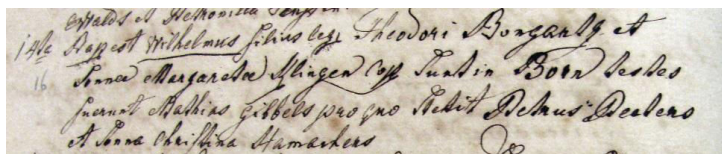 Ewalds et Petronilla
14ta Bapest Wilhelmus filius legi Theodori Bongartz et
16 Anna Margareta Esfingen Copp sunt in Born testes
fuerunt Mathias Gibbels pro quo stetit Petrus Peeters
et Anna Christina Hamachers